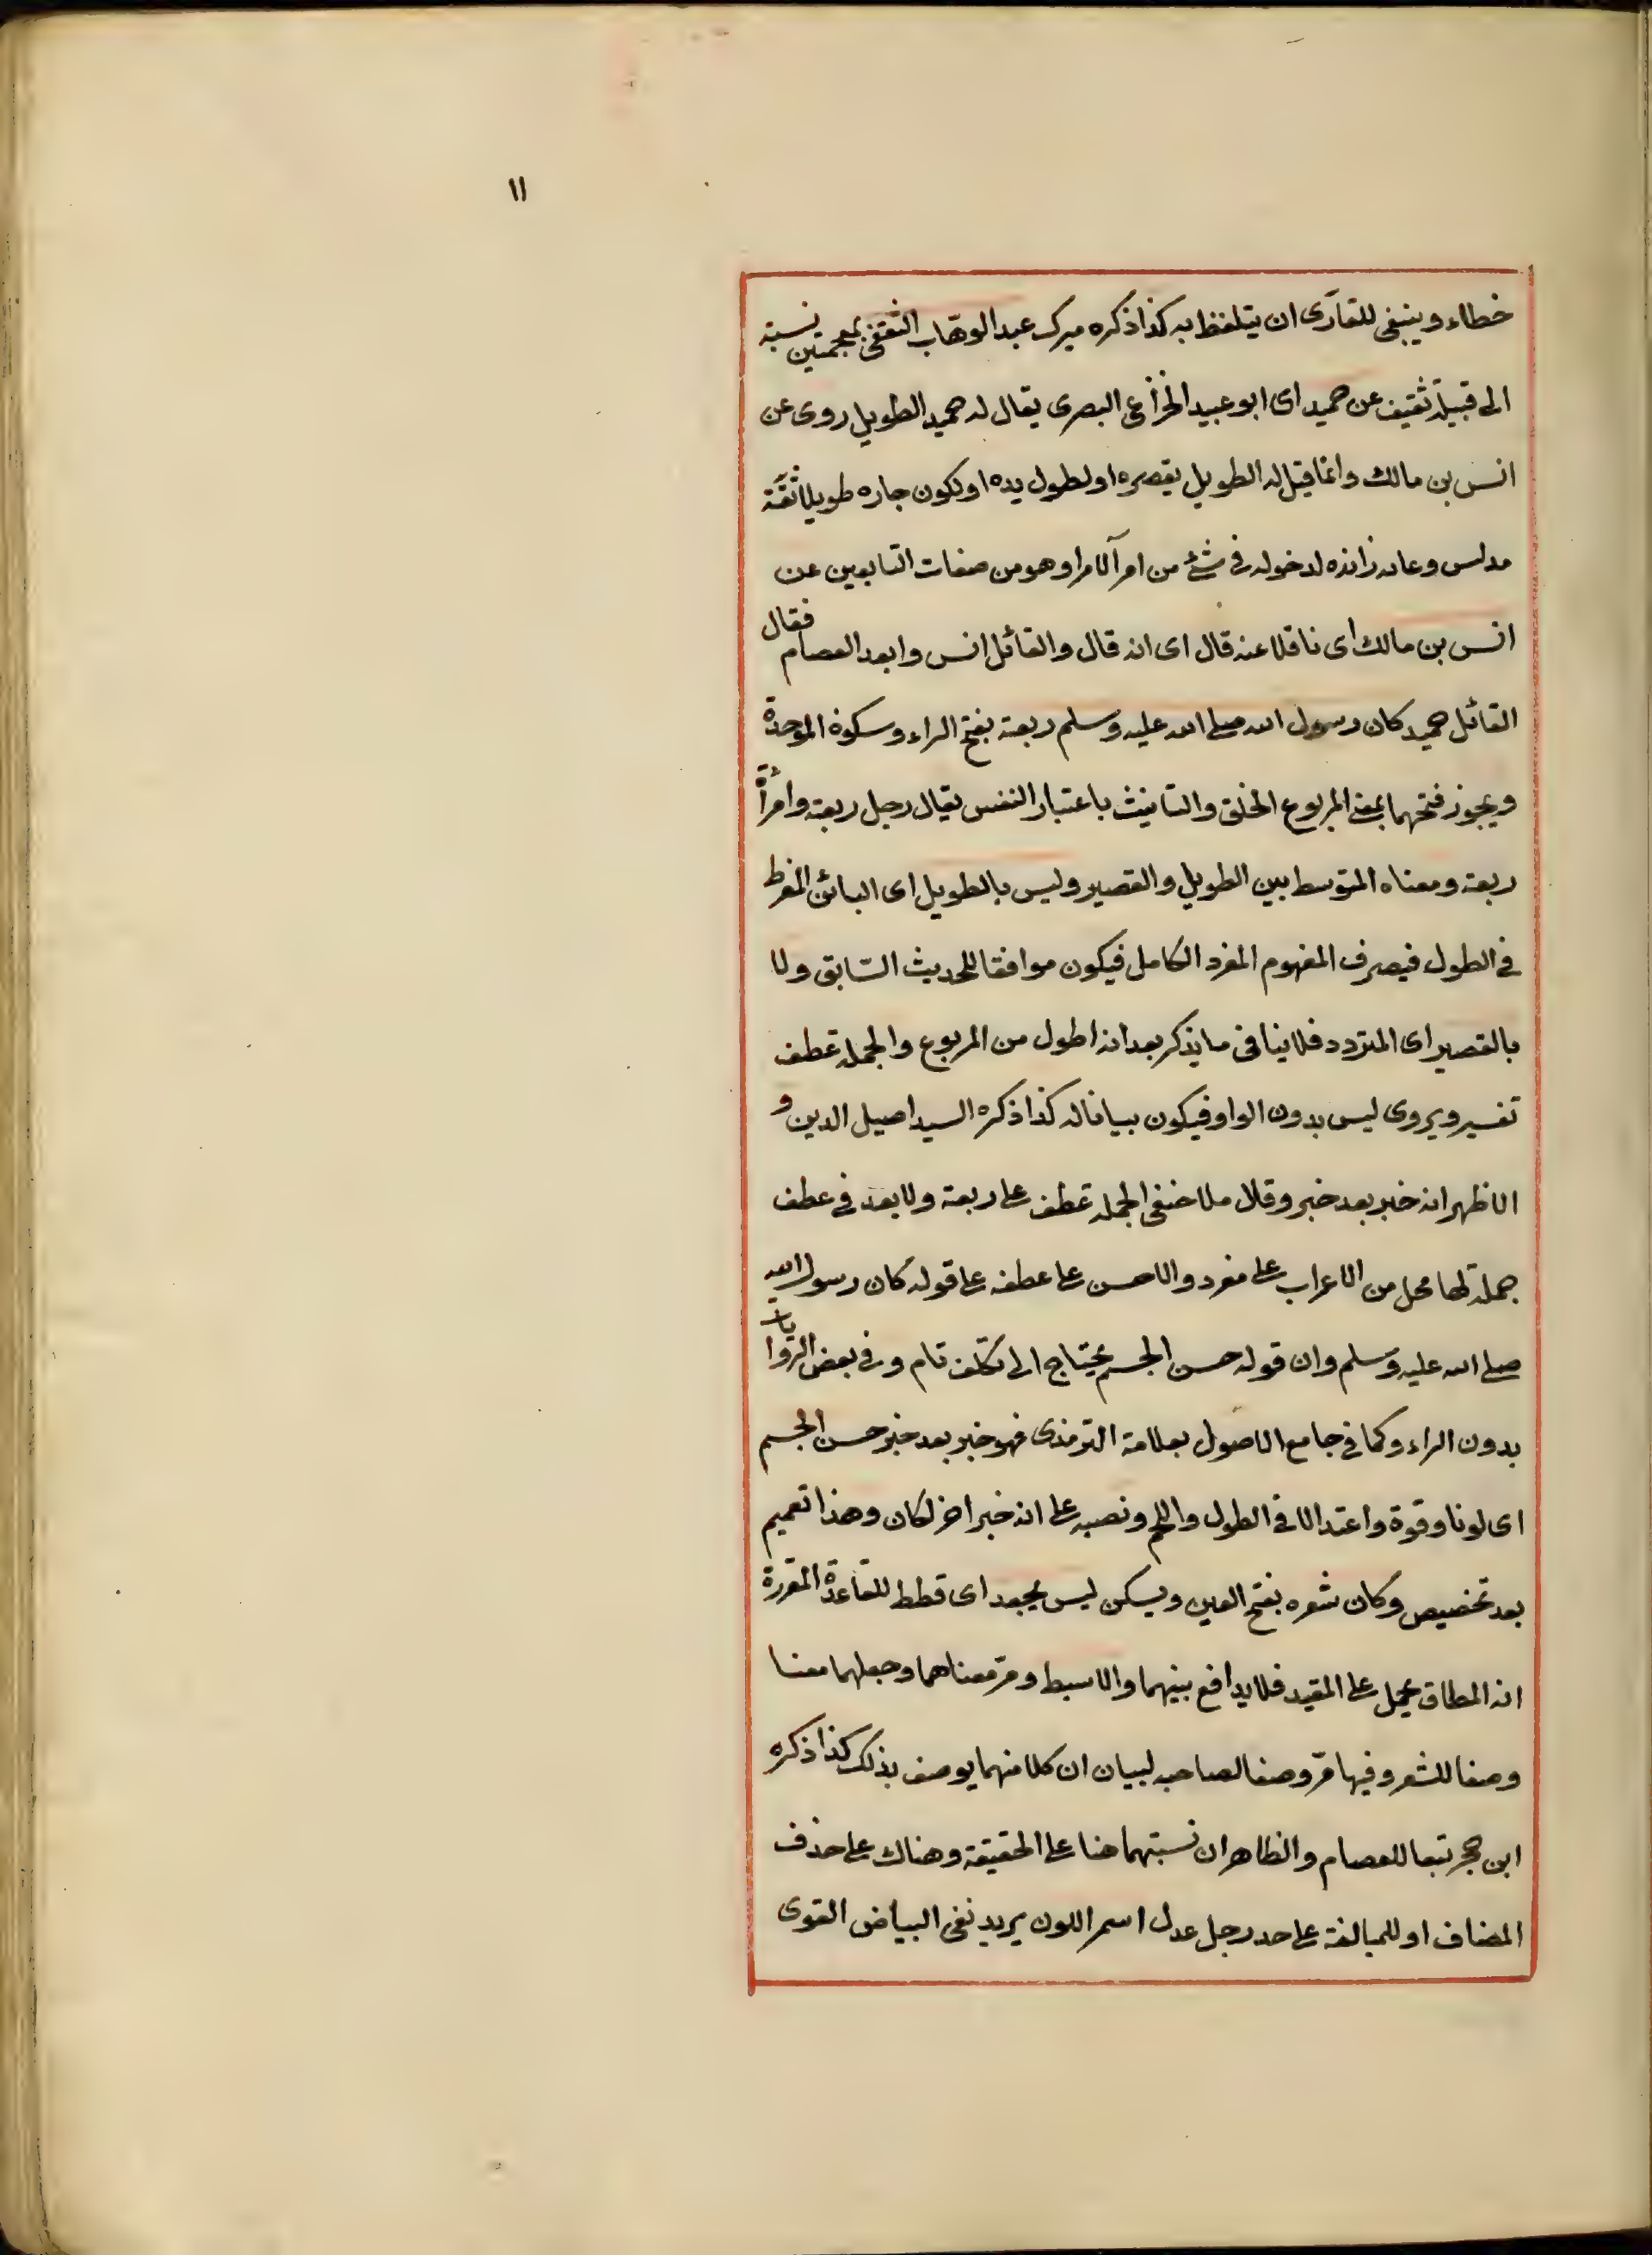 ١١
خطاء وينبغى للقارى ان يتلفظ به كذا ذكره ميرك عبد الوهّاب الثقفى بمعجمتين نسبة
الى قبيلة ثقيف عن حميد اى ابو عبيد الخزاعى البصرى يقال له حميد الطويل روى عن
انس بن مالك وانما قيل له الطويل بقصره او لطول يده او لكون جاره طويلا ثقة
مدلس وعابه زائده لدخوله فى شئ من امر الامراء وهو من صفات التابعين عن
انس بن مالك اى ناقلا عنه قال اى انه قال والقائل انس وابعد العصام فقال
القائل حميد كان رسول الله صلى الله عليه وسلم ربعة بفتح الراء وسكون الموحدة
ويجوز فتحهما بمعنى المربوع الخلق والتانيث باعتبار النفس يقال رجل ربعة وامرأة
ربعة ومعناه المتوسط بين الطويل والقصير وليس بالطويل اى البائن المفرط
فى الطول فيصرف المفهوم المفرد الكامل فيكون موافقا للحديث السّابق ولا
بالقصير اى المتردد فلا ينافى ما يذكر بعد انه اطول من المربوع والجملة عطف
تفسير ويروى ليس بدون الواو فيكون بيانا له كذا ذكره السيد اصيل الدين و
الاظهر انه خبر بعد خبر وقال ملا حنفى الجملة عطف على ربعة ولا بعد فى عطف
جملة لها محل من الاعراب على مفرد والاحسن على عطفه على قوله كان رسول الله
صلى الله عليه وسلم وان قوله حسن الجسم يحتاج الى تكلف تام وفى بعض الروايات
بدون الراء وكما فى جامع الاصول بعلامة الترمذى فهو خبر بعد خبر حسن الجسم
اى لونا وقوة واعتدالا فى الطول واللحم ونصبه على انه خبر اخر لكان وهذا تعميم
بعد تخصيص وكان شعره بفتح العين ويسكن ليس بجعد اى قطط للقاعدة المقررة
انه المطلق يحمل على المقيد فلا يدافع بينهما والاسبط ومرّ معناهما وجعلهما معنا
وصفا للشعر وفيما مرّ وصفا لصاحبه لبيان ان كلا منهما يوصف بذلك كذا ذكره
ابن حجر تبعا للعصام والظاهر ان نسبتهما هنا على الحقيقة وهناك على حذف
المضاف او للمبالغة على حد رجل عدل اسمر اللون يريد نفى البياض القوى